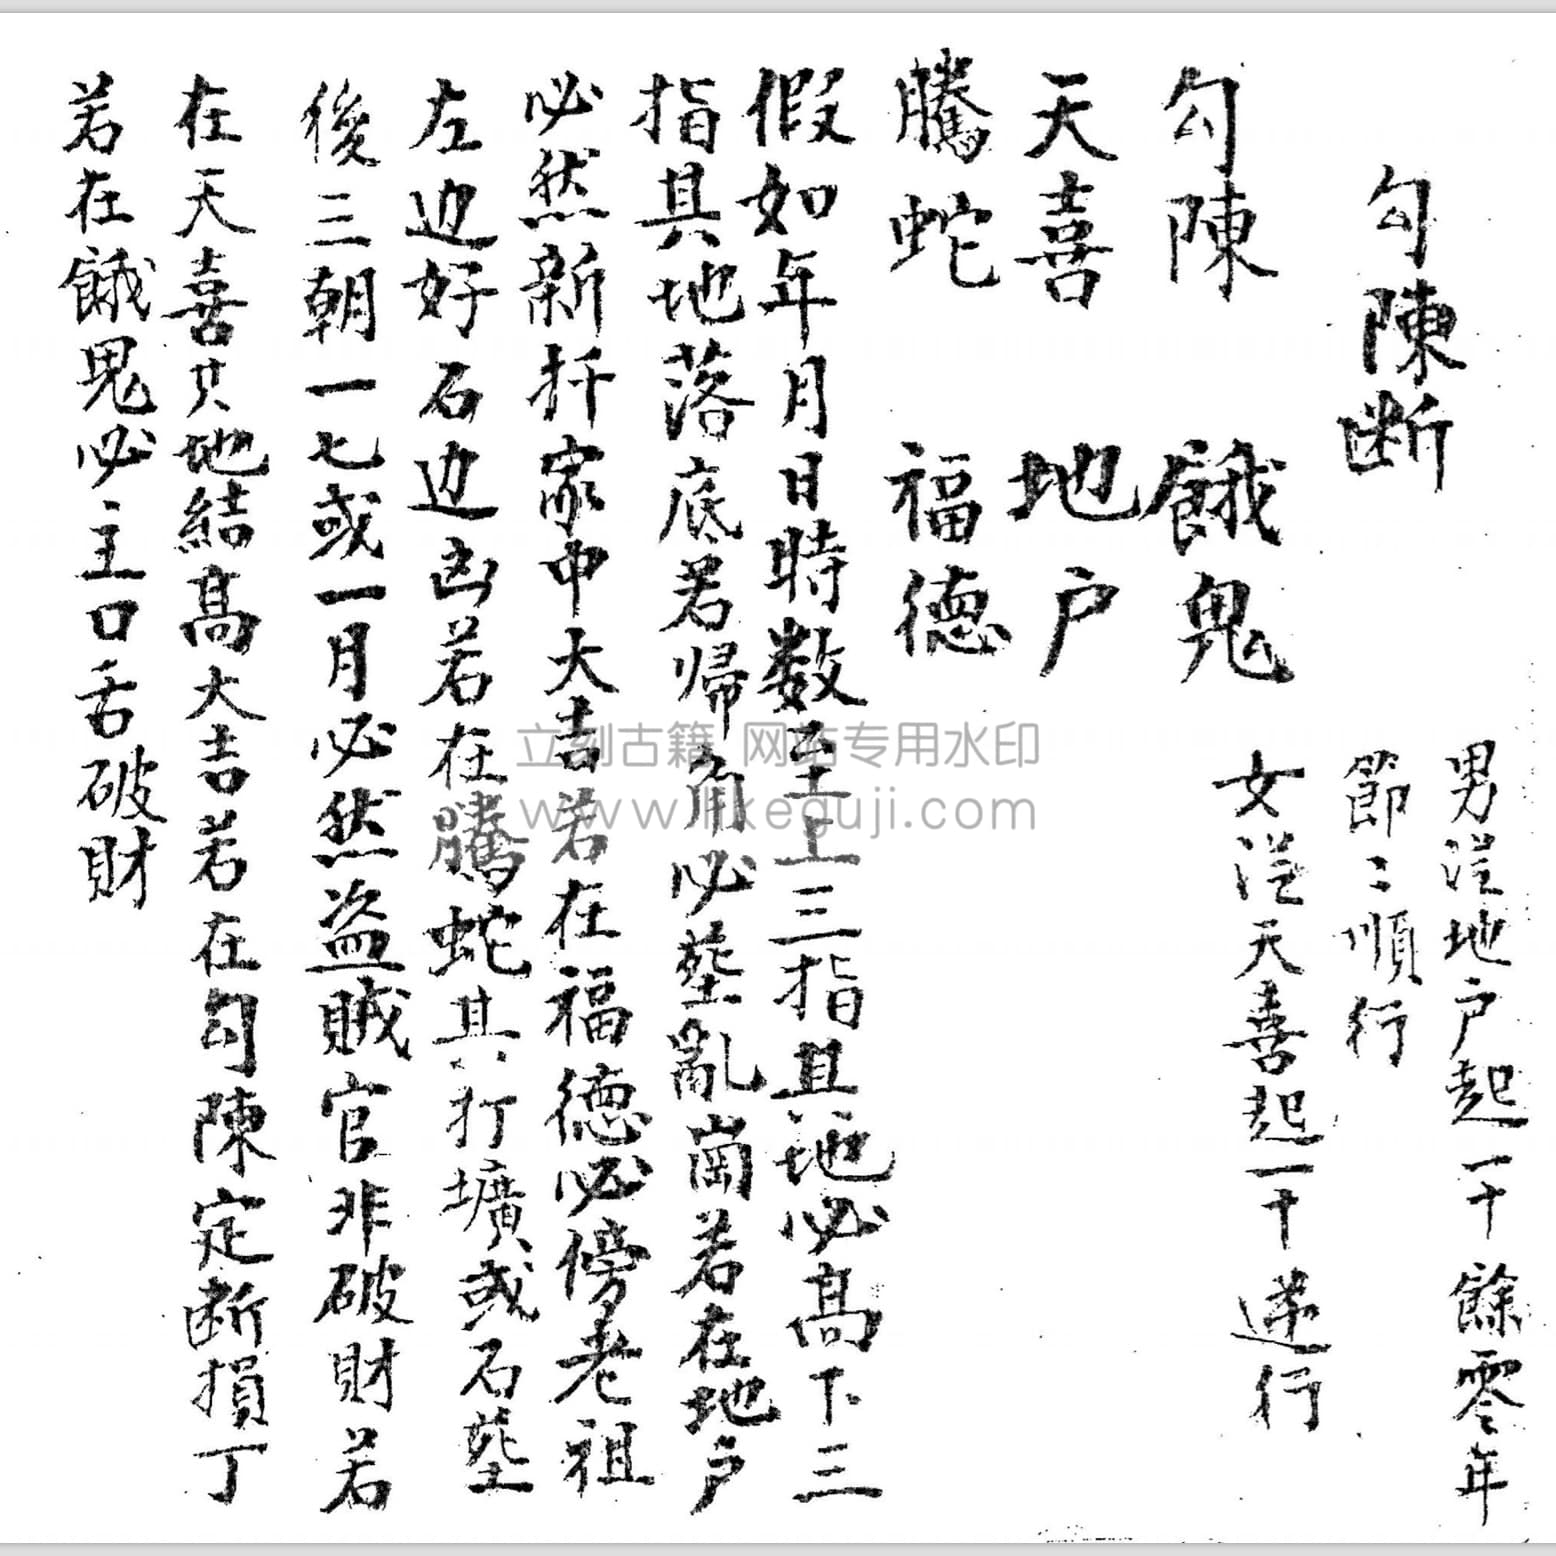 勾陳断
男従地户起一十餘零年
節〻順行
女従天喜起一十逆行
勾陳 餓鬼
天喜 地户
騰蛇 福德
假如年月日時数至上三指其地必髙下三
指其地落底若帰角必塟亂崗若在地户
必然新扦家中大吉若在福德必傍老祖
左边好石边凶若在騰蛇其打壙或石塟
後三朝一七或一月必然盗賊官非破財若
在天喜其地結髙大吉若在勾陳定断損丁
若在餓鬼必主口舌破財
立刻古籍 网站专用水印
www.likeguji.com